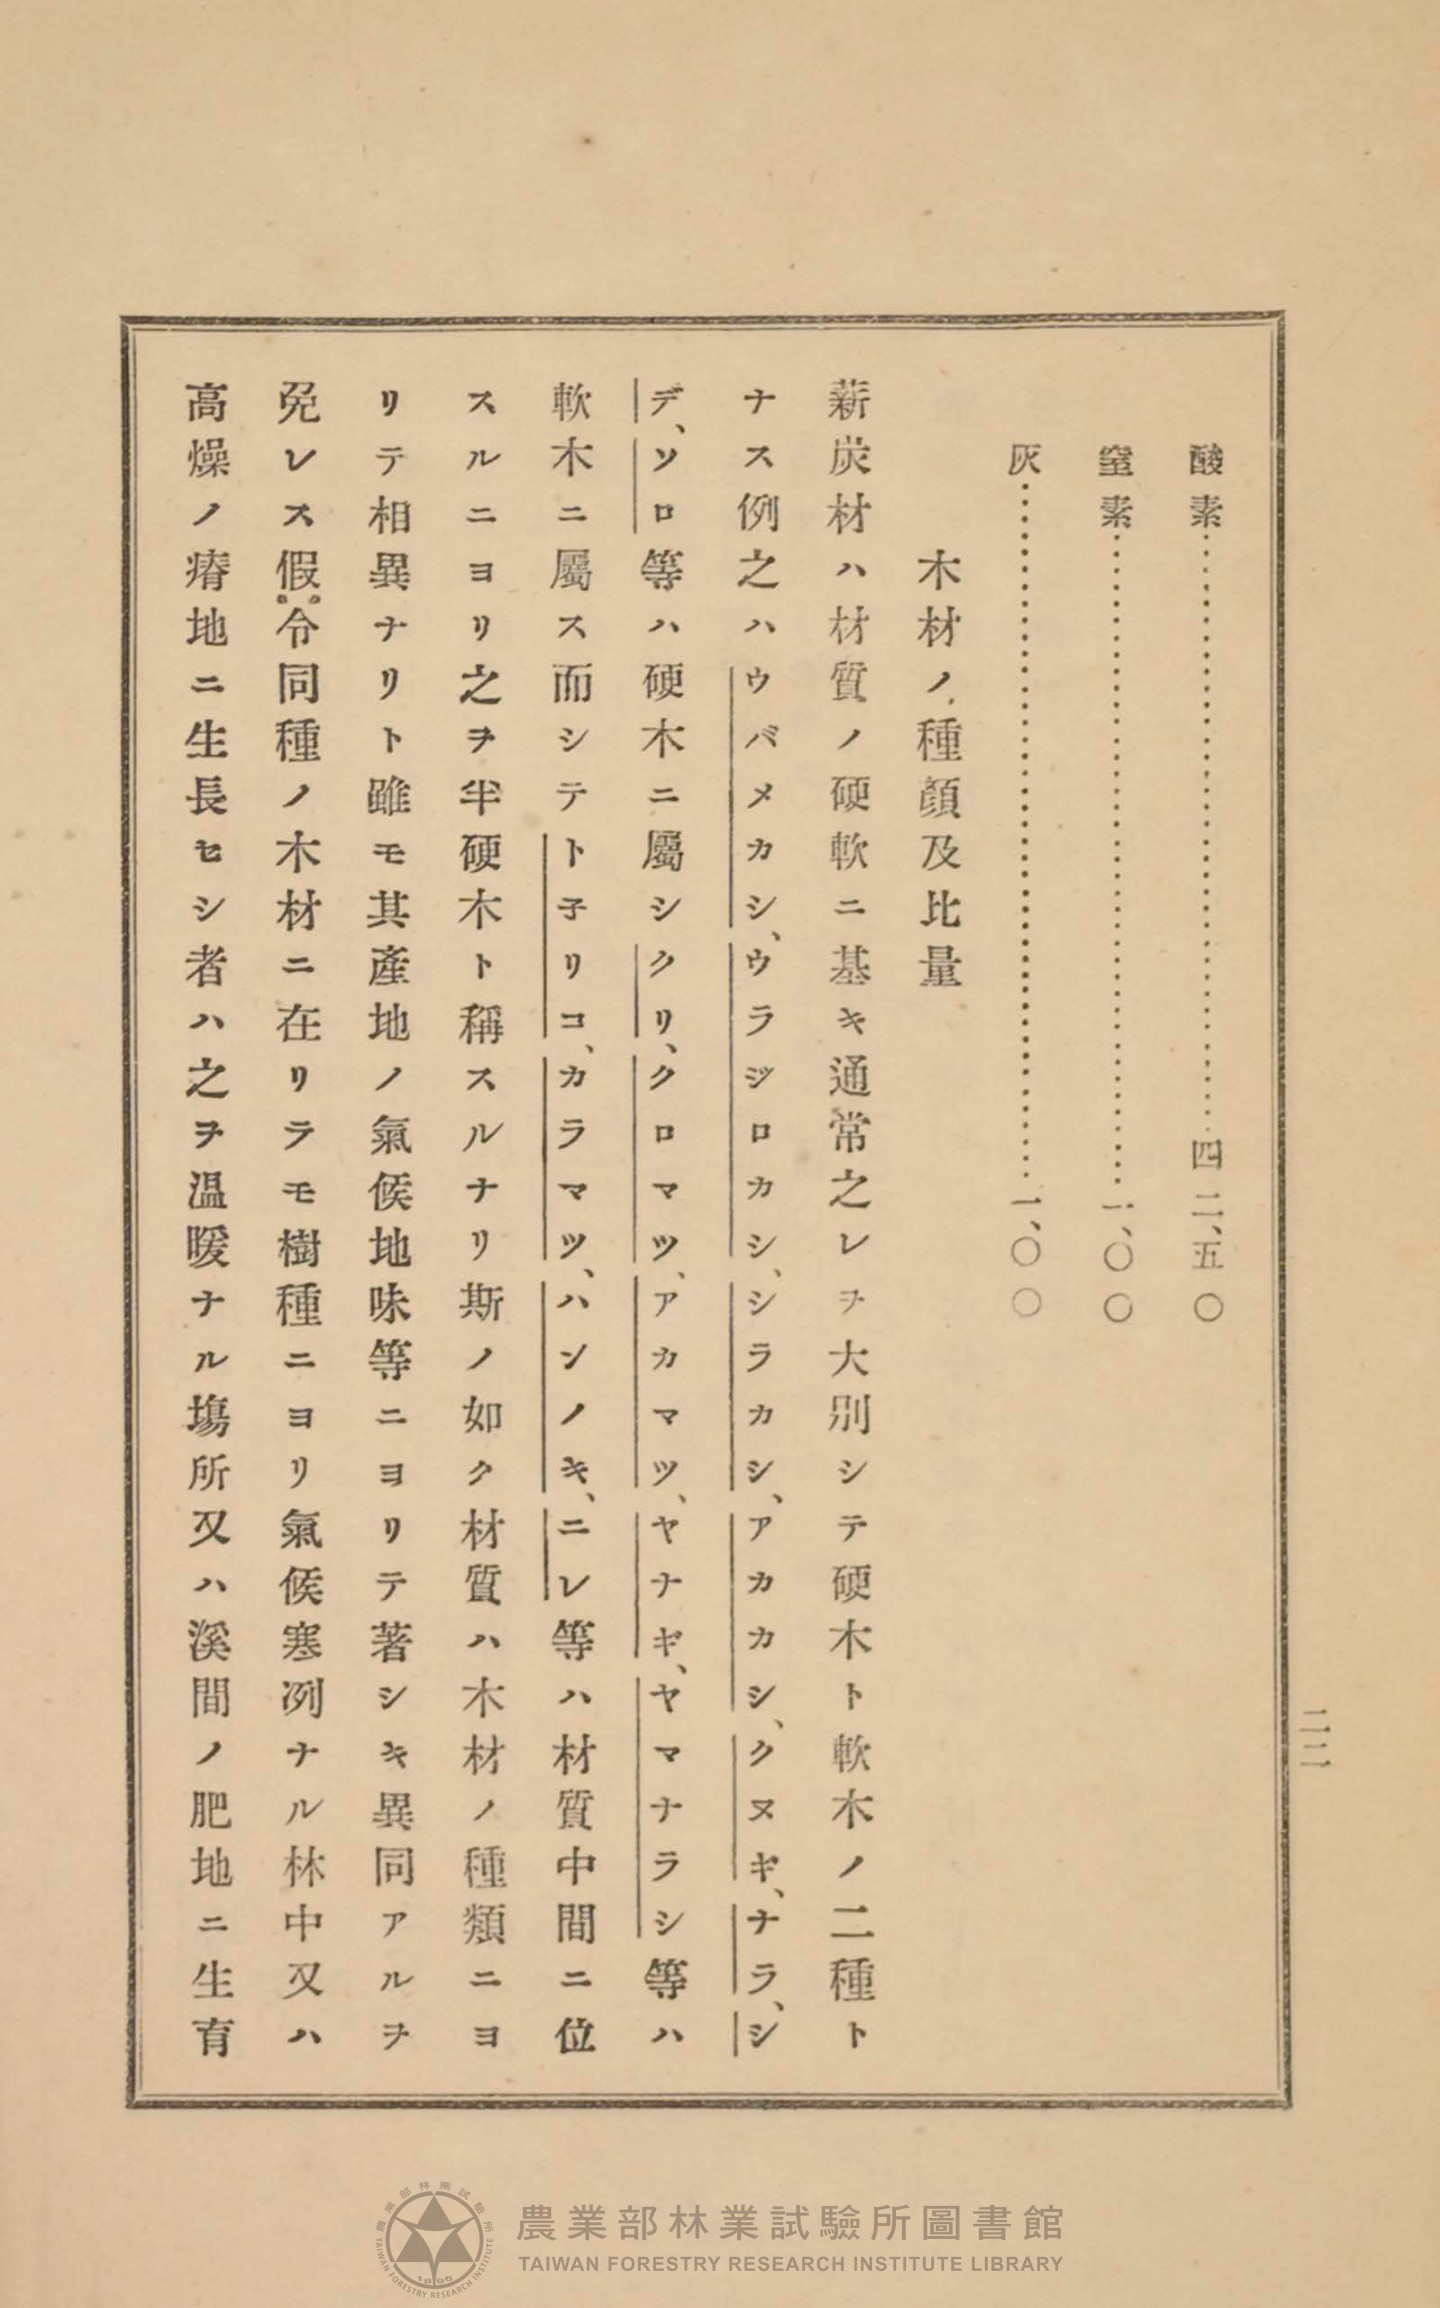 酸素……………………………四二、五〇
窒素……………………………一、〇〇
灰………………………………一、〇〇
木材ノ種顏及比量
薪炭材ハ材質ノ硬軟ニ基キ通常之レヲ大別シテ硬木ト軟木ノ二種ト
ナス例之ハウバメカシ、ウラジロカシ、シラカシ、アカカシ、クヌギ、ナラ、シ
デ、ソロ等ハ硬木ニ屬シクリ、クロマツ、アカマツ、ヤナギ、ヤマナラシ等ハ
軟木ニ屬ス而シテト子リコ、カラマツ、ハンノキ、ニレ等ハ材質中間ニ位
スルニヨリ之ヲ半硬木ト稱スルナリ斯ノ如ク材質ハ木材ノ種類ニヨ
リテ相異ナリト雖モ其產地ノ氣候地味等ニヨリテ著シキ異同アルヲ
免レス假令同種ノ木材ニ在リテモ樹種ニヨリ氣候寒冽ナル林中又ハ
高燥ノ瘠地ニ生長セシ者ハ之ヲ溫暖ナル塲所又ハ溪間ノ肥地ニ生育
二二
農業部林業試驗所圖書館
TAIWAN FORESTRY RESEARCH INSTITUTE LIBRARY
農業部林業試驗所
TAIWAN FORESTRY RESEARCH INSTITUTE
1896